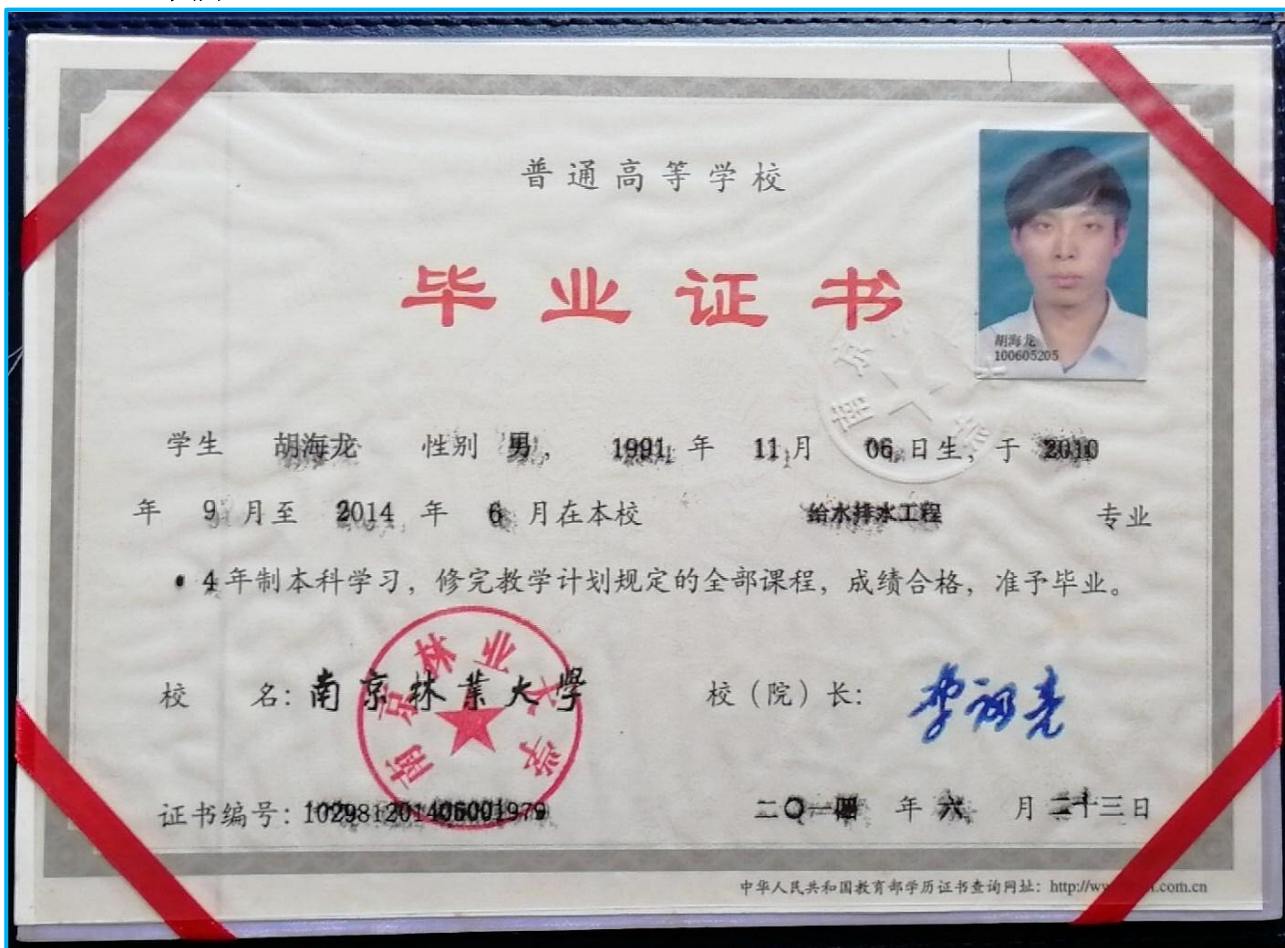 普通高等学校
毕业证书
胡海龙
100605205
学生 胡海龙 性别 男， 1991 年 11 月 06 日生，于 2010
年 9 月至 2014 年 6 月在本校 给水排水工程 专业
4 年制本科学习，修完教学计划规定的全部课程，成绩合格，准予毕业。
校 名：南京林業大學 校（院）长：
南京林业大学
证书编号：102981201406001979 二〇一四 年 六 月 二十三日
中华人民共和国教育部学历证书查询网址：http://ww .com.cn